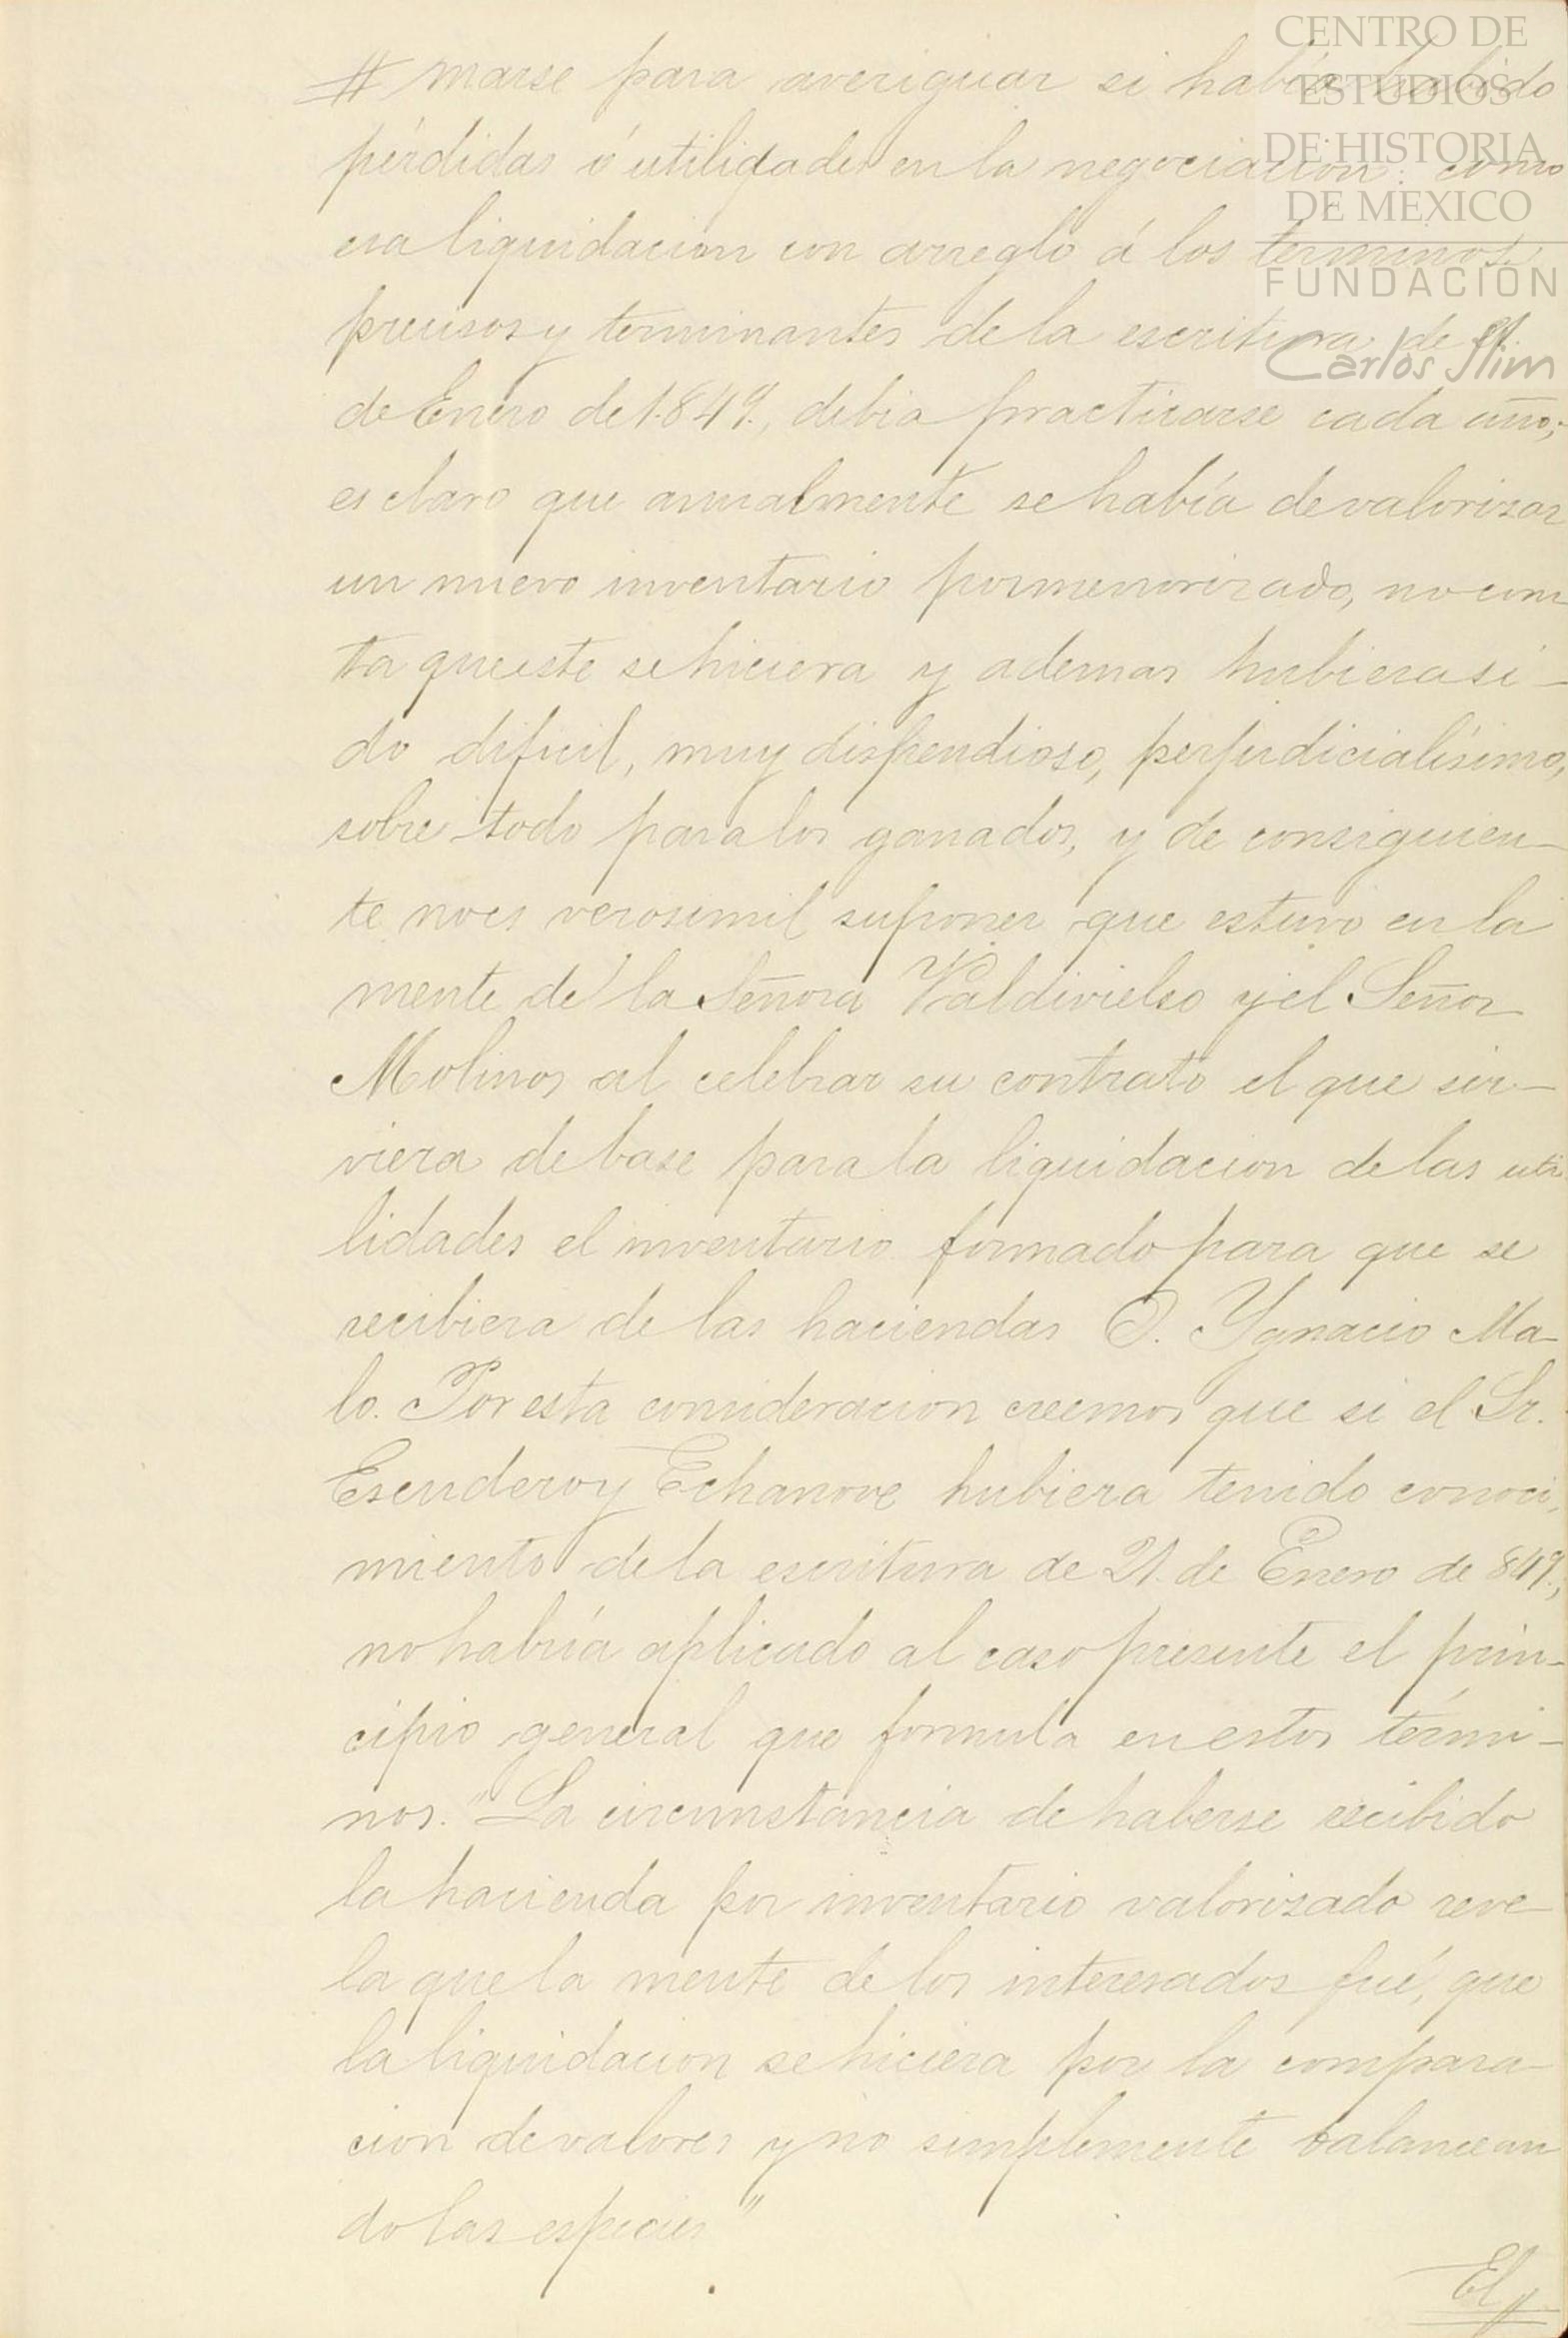 # marse para averiguar si había habido
pérdidas ó utilidades en la negociacion: como
esa liquidacion con arreglo á los terminos
precisos y terminantes de la escritura de 21.
de Enero de 1849., debia practicarse cada año;
es claro que anualmente se había de valorizar
un nuevo inventario pormenorizado, no cons
ta que este se hiciera y ademas hubiera si-
do dificil, muy dispendioso, perjudicialísimo,
sobre todo para los ganados, y de consiguien-
te no es verosimil suponer que estuvo en la
mente de la Señora Valdivielso y el Señor
Molinos al celebrar su contrato el que sir-
viera de base para la liquidacion de las uti
lidades el inventario formado para que se
recibiera de las haciendas D. Ygnacio Ma-
lo. Por esta consideracion creemos que si el Sr.
Escudero y Echanove hubiera tenido conoci,
miento de la escritura de 21. de Enero de 849.,
no habría aplicado al caso presente el prin-
cipio general que formula en estos térmi-
nos. "La circunstancia de haberse recibido
la hacienda por inventario valorizado reve-
la que la mente de los interesados fué, que
la liquidacion se hiciera por la compara-
cion de valores y no simplemente balancean
do las especies"
El
CENTRO DE
ESTUDIOS
DE HISTORIA
DE MÉXICO
FUNDACIÓN
Carlos Slim